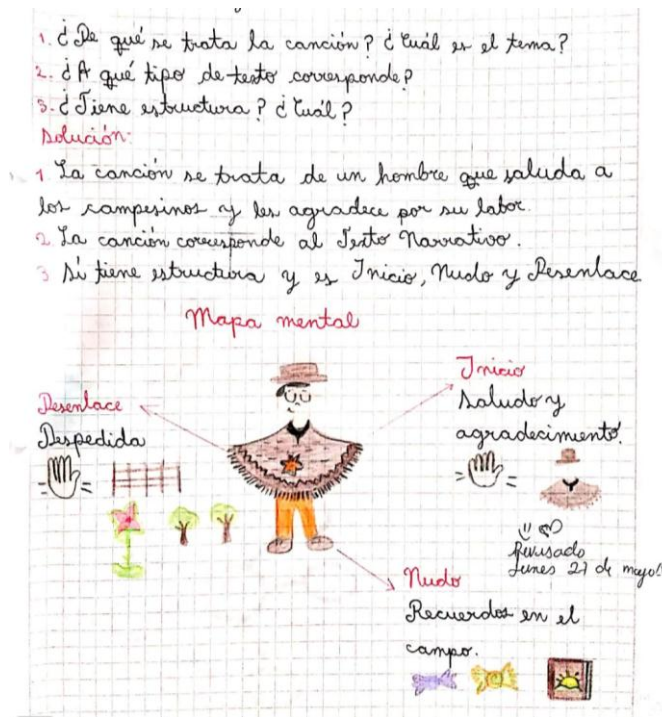 1. ¿De qué se trata la canción? ¿Cuál es el tema?
2. ¿A qué tipo de texto corresponde?
3. ¿Tiene estructura? ¿Cuál?
Solución:
1 La canción se trata de un hombre que saluda a
los campesinos y les agradece por su labor.
2. La canción corresponde al Texto Narrativo.
3 Si tiene estructura y es Inicio, Nudo y Desenlace
Mapa mental
Inicio
Saludo y
agradecimiento.
Desenlace
Despedida
Revisado
Lunes 21 de mayo
Nudo
Recuerdos en el
campo.